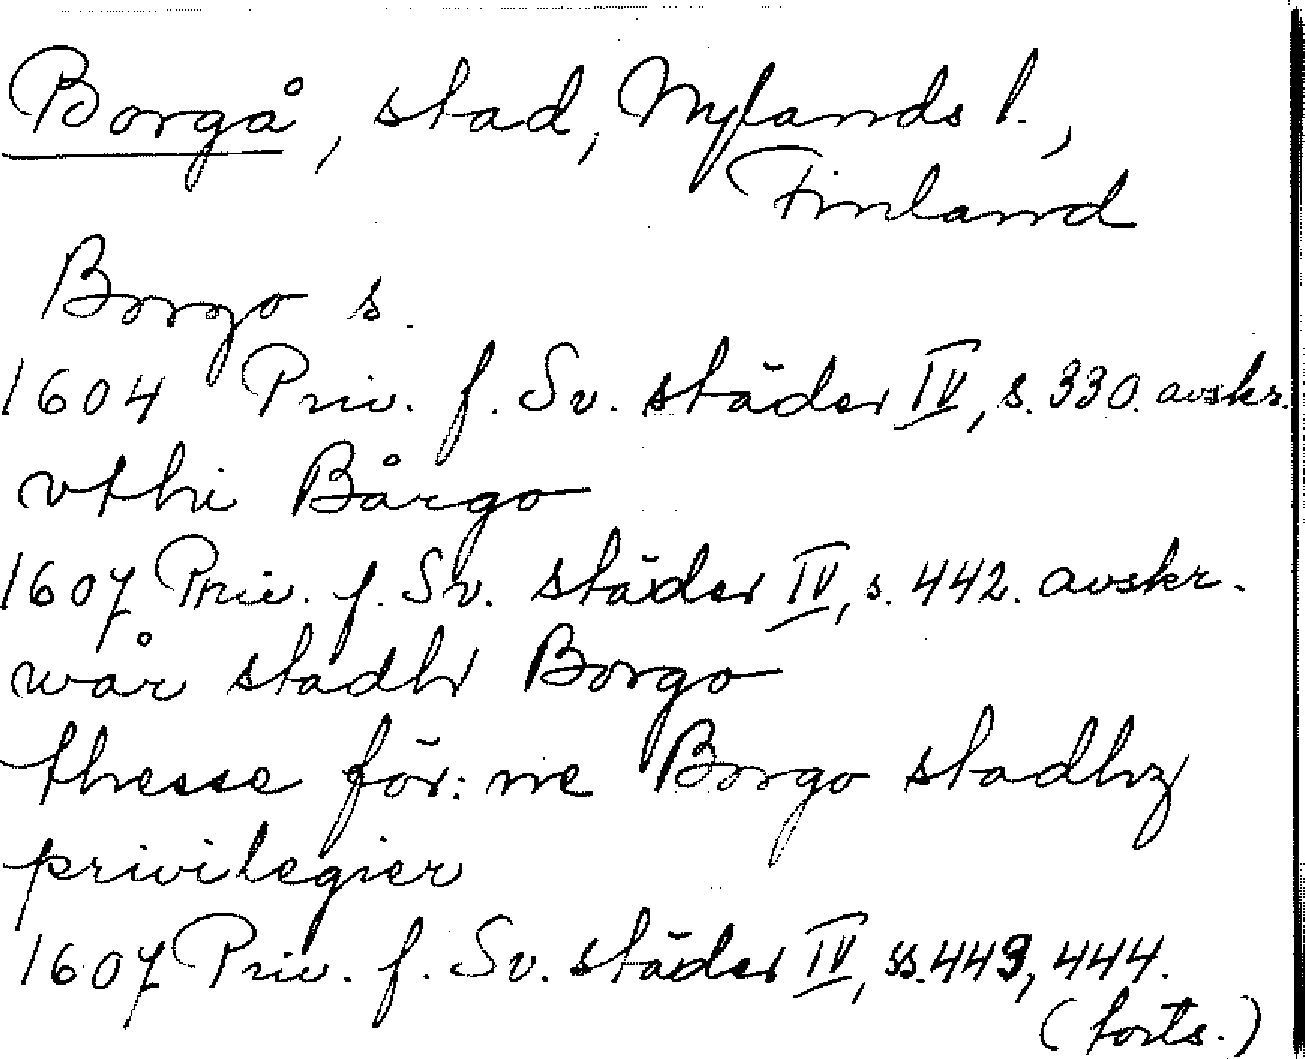 Borgå, stad, Nylands l.,
Finland
Borgo s.
1604 Priv. f. Sv. städer IV, s. 330. avskr.
vthi Bårgo
1607 Priv. f. Sv. städer IV, s. 442. avskr.
wår stadh Borgo
thesse för:ne Borgo stadhz
privilegier
1607 Priv. f. Sv. städer IV, ss. 443, 444.
(forts.)